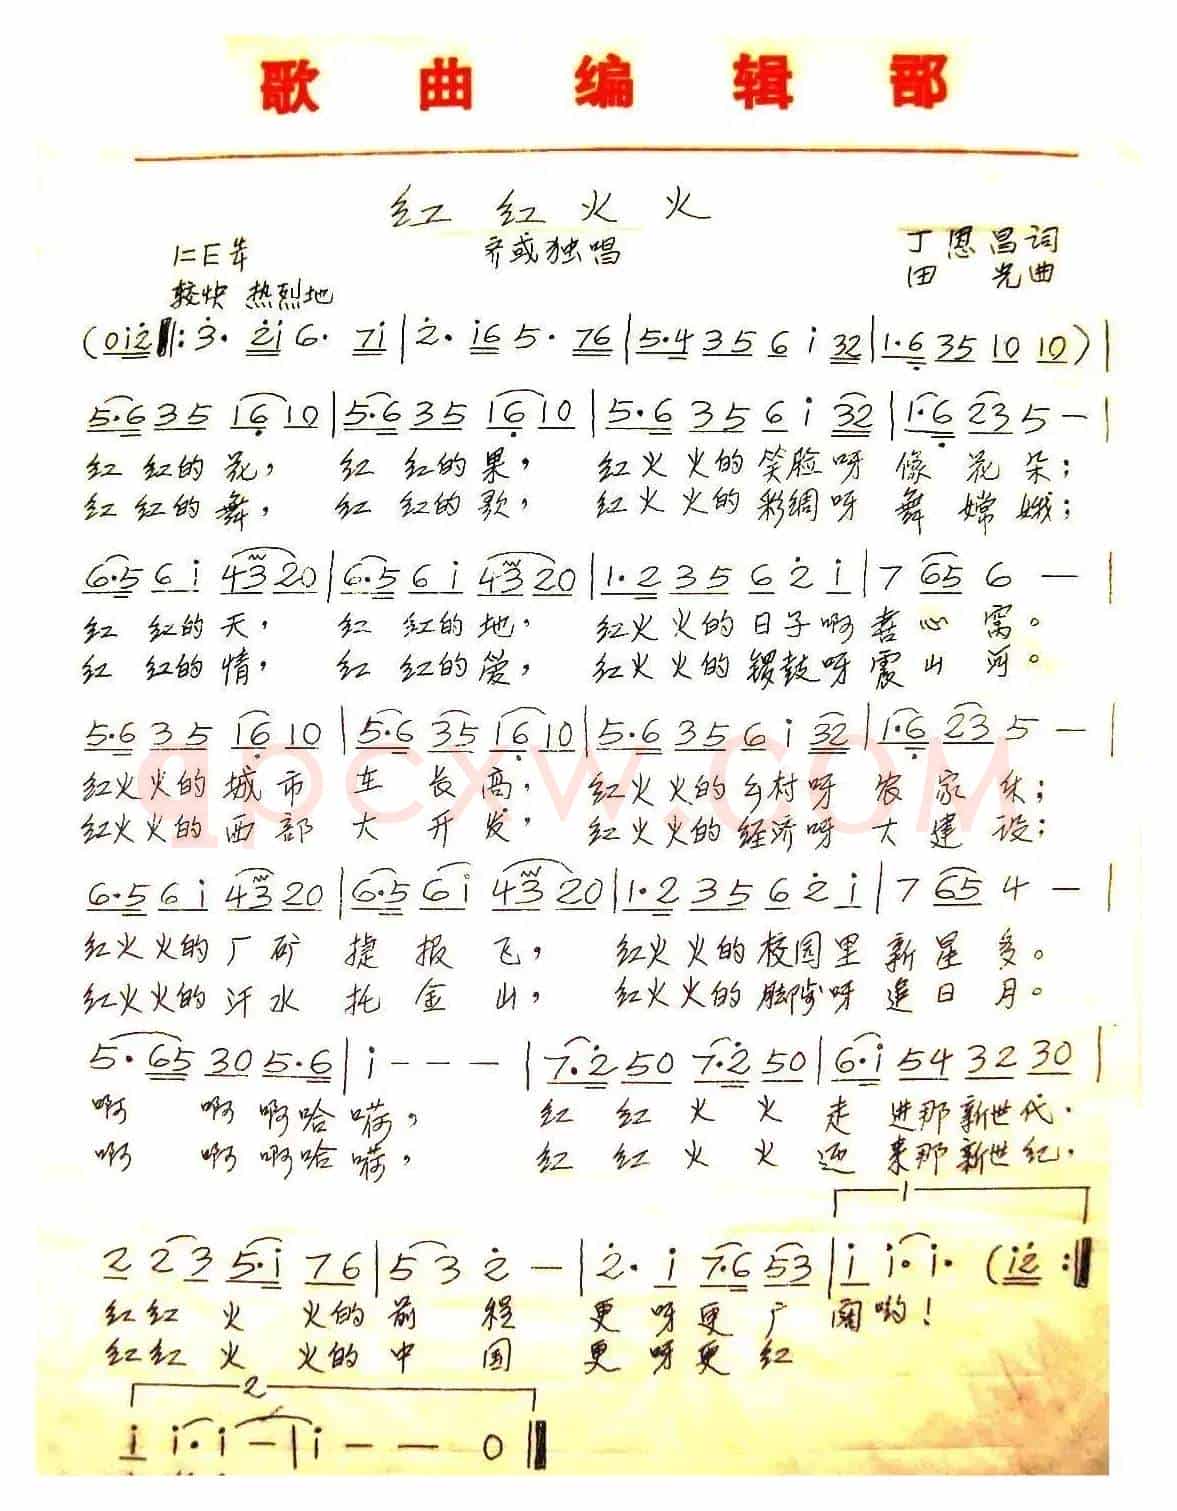 歌曲编辑部
红红火火
1=E 2/4
齐或独唱
丁恩昌词
田光曲
较快 热烈地
(0i2‖:3· 2i 6· 7i|2· i6 5· 76|5·4 35 6 i 32|1·6 35 10 10)|
5·6 35 16 10|5·6 35 16 10|5·6 35 6 i 32|1·6 23 5 —|
红 红的花, 红 红的果, 红火火的笑脸呀 像 花 朵;
红 红的舞, 红 红的歌, 红火火的彩绸呀 舞 嫦 娥;
6·5 6i 43 20|6·5 6i 43 20|1·2 35 6 2 i|7 65 6 —|
红 红的天, 红 红的地, 红火火的日子啊喜心窝。
红 红的情, 红 红的爱, 红火火的锣鼓呀震山河。
5·6 35 16 10|5·6 35 16 10|5·6 35 6 i 32|1·6 23 5 —|
qpcxw.com
红火火的城市 在长高, 红火火的乡村呀 农家乐;
红火火的西部 大开发, 红火火的经济呀 大建设;
6·5 6i 43 20|6·5 6i 43 20|1·2 35 6 2 i|7 65 4 —|
红火火的厂矿 捷报飞, 红火火的校园里 新星多。
红火火的汗水 托金山, 红火火的脚步呀 追日月。
5·65 30 5·6|i — — —|7·2 50 7·2 50|6·i 54 32 30|
啊 啊 啊哈嗬, 红 红 火 火 走 进那新世代.
啊 啊 啊哈嗬, 红 红 火 火 迎 来那新世纪.
1
2 23 5·i 76|53 2 —|2· i 7·6 53|i i·i· (i2:‖
红红 火 火的前 程 更 呀更广 阔哟!
红红 火 火的中 国 更 呀更红
2
i i·i —|i — — 0‖